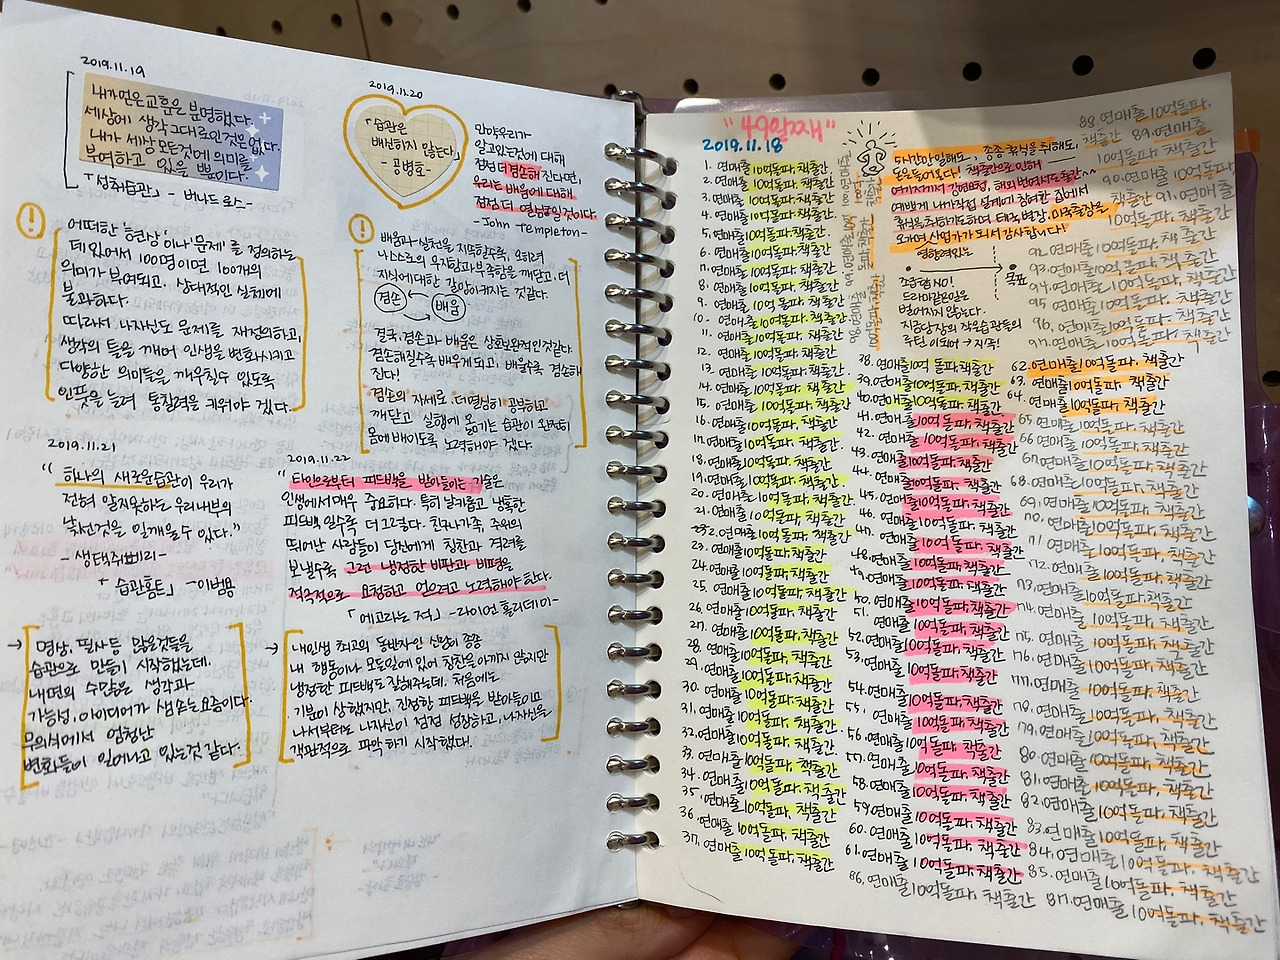 2019.11.19
내가 얻은 교훈은 분명했다.
세상에 생각 그대로인 것은 없다.
내가 세상 모든것에 의미를
부여하고 있을 뿐이다.
「성취습관」 - 버나드 로스-
어떠한 '현상'이나 '문제'를 정의하는
데 있어서 100명이면 100개의
의미가 부여되고, 상대적인 실체에
불과하다.
따라서 나자신도 문제를 재정의하고,
생각의 틀을 깨어 인생을 변화시키고
다양한 의미들을 깨우칠수 있도록
인풋을 늘려 통찰력을 키워야 겠다.
2019.11.20
「습관은
배신하지 않는다」
- 공병호-
만약 우리가
알고있는것에 대해
점점 더 겸손해 진다면,
우리는 배움에 대해
점점 더 열심일것이다.
-John Templeton-
배움과 실천을 지속할수록, 오히려
나스스로의 무지함과 부족함을 깨닫고, 더
지식에 대한 갈망이 커지는 것같다.
겸손 배움
결국, 겸손과 배움은 상호보완적인것같다.
겸손해질수록 배우게 되고, 배울수록 겸손해
진다!
겸손의 자세로 더 열심히 공부하고
깨닫고 실행에 옮기는 습관이 완전히
몸에 배이도록 노력해야 겠다.
2019.11.21
"하나의 새로운습관이 우리가
전혀 알지못하는 우리내부의
낯선것을 일깨울 수 있다."
- 생텍쥐페리-
「습관홈트」 -이범용
→ 명상, 필사등 많은것들을
습관으로 만들기 시작했는데,
내면의 수많은 생각과
가능성, 아이디어가 샘솟는 요즘이다.
무의식에서 엄청난
변화들이 일어나고 있는것 같다.
2019.11.22
"타인으로부터 피드백을 받아들이는 기술은
인생에서 매우 중요하다. 특히 날카롭고 냉혹한
피드백 일수록 더 그렇다. 친구나 가족, 주위의
뛰어난 사람들이 당신에게 칭찬과 격려를
보낼수록 그런 냉정한 비판과 비평을
적극적으로 요청하고 얻으려고 노력해야 한다.
「에고라는 적」 -라이언 홀리데이-
→ 내인생 최고의 동반자인 신랑이 종종
내 행동이나 모든일에 있어 칭찬을 아끼지 않지만
냉정한 피드백도 잘해주는데, 처음에는
기분이 상했지만, 진정한 피드백을 받아들이고
나서부터는 나자신이 점점 성장하고, 나자신을
객관적으로 파악하기 시작했다.
"49일째"
2019.11.18
1. 연매출10억돌파, 책출간.
2. 연매출10억돌파, 책출간
3. 연매출10억돌파, 책출간
4. 연매출10억돌파, 책출간
5. 연매출10억돌파, 책출간
6. 연매출10억돌파, 책출간
7. 연매출10억돌파, 책출간
8. 연매출10억돌파, 책출간
9. 연매출10억돌파, 책출간
10. 연매출10억돌파, 책출간
11. 연매출10억돌파, 책출간
12. 연매출10억돌파, 책출간
13. 연매출10억돌파, 책출간
14. 연매출10억돌파, 책출간
15. 연매출10억돌파, 책출간
16. 연매출10억돌파, 책출간
17. 연매출10억돌파, 책출간
18. 연매출10억돌파, 책출간
19. 연매출10억돌파, 책출간
20. 연매출10억돌파, 책출간
21. 연매출10억돌파, 책출간
22. 연매출10억돌파, 책출간
23. 연매출10억돌파, 책출간
24. 연매출10억돌파, 책출간
25. 연매출10억돌파, 책출간
26. 연매출10억돌파, 책출간
27. 연매출10억돌파, 책출간
28. 연매출10억돌파, 책출간
29. 연매출10억돌파, 책출간
30. 연매출10억돌파, 책출간
31. 연매출10억돌파, 책출간
32. 연매출10억돌파, 책출간
33. 연매출10억돌파, 책출간
34. 연매출10억돌파, 책출간
35. 연매출10억돌파, 책출간
36. 연매출10억돌파, 책출간
37. 연매출10억돌파, 책출간
5시간만일해도, 종종 휴식을 취해도,
돈은들어온다! 책출간으로 인해
여기저기서 강연요청, 해외번역서도출간~
예쁘게 내가직접 설계에 참여한 집에서
휴식을 취하기도하며 태국, 발리, 미국출장을
오가며 사업가가 되서 감사합니다!
영향력있는
목표
조급함NO!
드라마같은일은
벌어지지 않는다.
지금당장의 작은습관들의
루틴이되어 → 지속!
38. 연매출10억돌파, 책출간
39. 연매출10억돌파, 책출간
40. 연매출10억돌파, 책출간
41. 연매출10억돌파, 책출간
42. 연매출10억돌파, 책출간
43. 연매출10억돌파, 책출간
44. 연매출10억돌파, 책출간
45. 연매출10억돌파, 책출간
46. 연매출10억돌파, 책출간
47. 연매출10억돌파, 책출간
48. 연매출10억돌파, 책출간
49. 연매출10억돌파, 책출간
50. 연매출10억돌파, 책출간
51. 연매출10억돌파, 책출간
52. 연매출10억돌파, 책출간
53. 연매출10억돌파, 책출간
54. 연매출10억돌파, 책출간
55. 연매출10억돌파, 책출간
56. 연매출10억돌파, 책출간
57. 연매출10억돌파, 책출간
58. 연매출10억돌파, 책출간
59. 연매출10억돌파, 책출간
60. 연매출10억돌파, 책출간
61. 연매출10억돌파, 책출간
62. 연매출10억돌파, 책출간
63. 연매출10억돌파, 책출간
64. 연매출10억돌파, 책출간
65. 연매출10억돌파, 책출간
66. 연매출10억돌파, 책출간
67. 연매출10억돌파, 책출간
68. 연매출10억돌파, 책출간
69. 연매출10억돌파, 책출간
70. 연매출10억돌파, 책출간
71. 연매출10억돌파, 책출간
72. 연매출10억돌파, 책출간
73. 연매출10억돌파, 책출간
74. 연매출10억돌파, 책출간
75. 연매출10억돌파, 책출간
76. 연매출10억돌파, 책출간
77. 연매출10억돌파, 책출간
78. 연매출10억돌파, 책출간
79. 연매출10억돌파, 책출간
80. 연매출10억돌파, 책출간
81. 연매출10억돌파, 책출간
82. 연매출10억돌파, 책출간
83. 연매출10억돌파, 책출간
84. 연매출10억돌파, 책출간
85. 연매출10억돌파, 책출간
86. 연매출10억돌파, 책출간
87. 연매출10억돌파, 책출간
88. 연매출10억돌파.
책출간 89. 연매출
10억돌파, 책출간
90. 연매출10억돌파,
책출간 91. 연매출
10억돌파, 책출간
92. 연매출10억돌파, 책출간
93. 연매출10억돌파, 책출간
94. 연매출10억돌파, 책출간
95. 연매출10억돌파, 책출간
96. 연매출10억돌파, 책출간
97. 연매출10억돌파, 책출간
98. 연매출10억돌파, 책출간
99. 연매출10억돌파, 책출간
100. 연매출10억돌파, 책출간